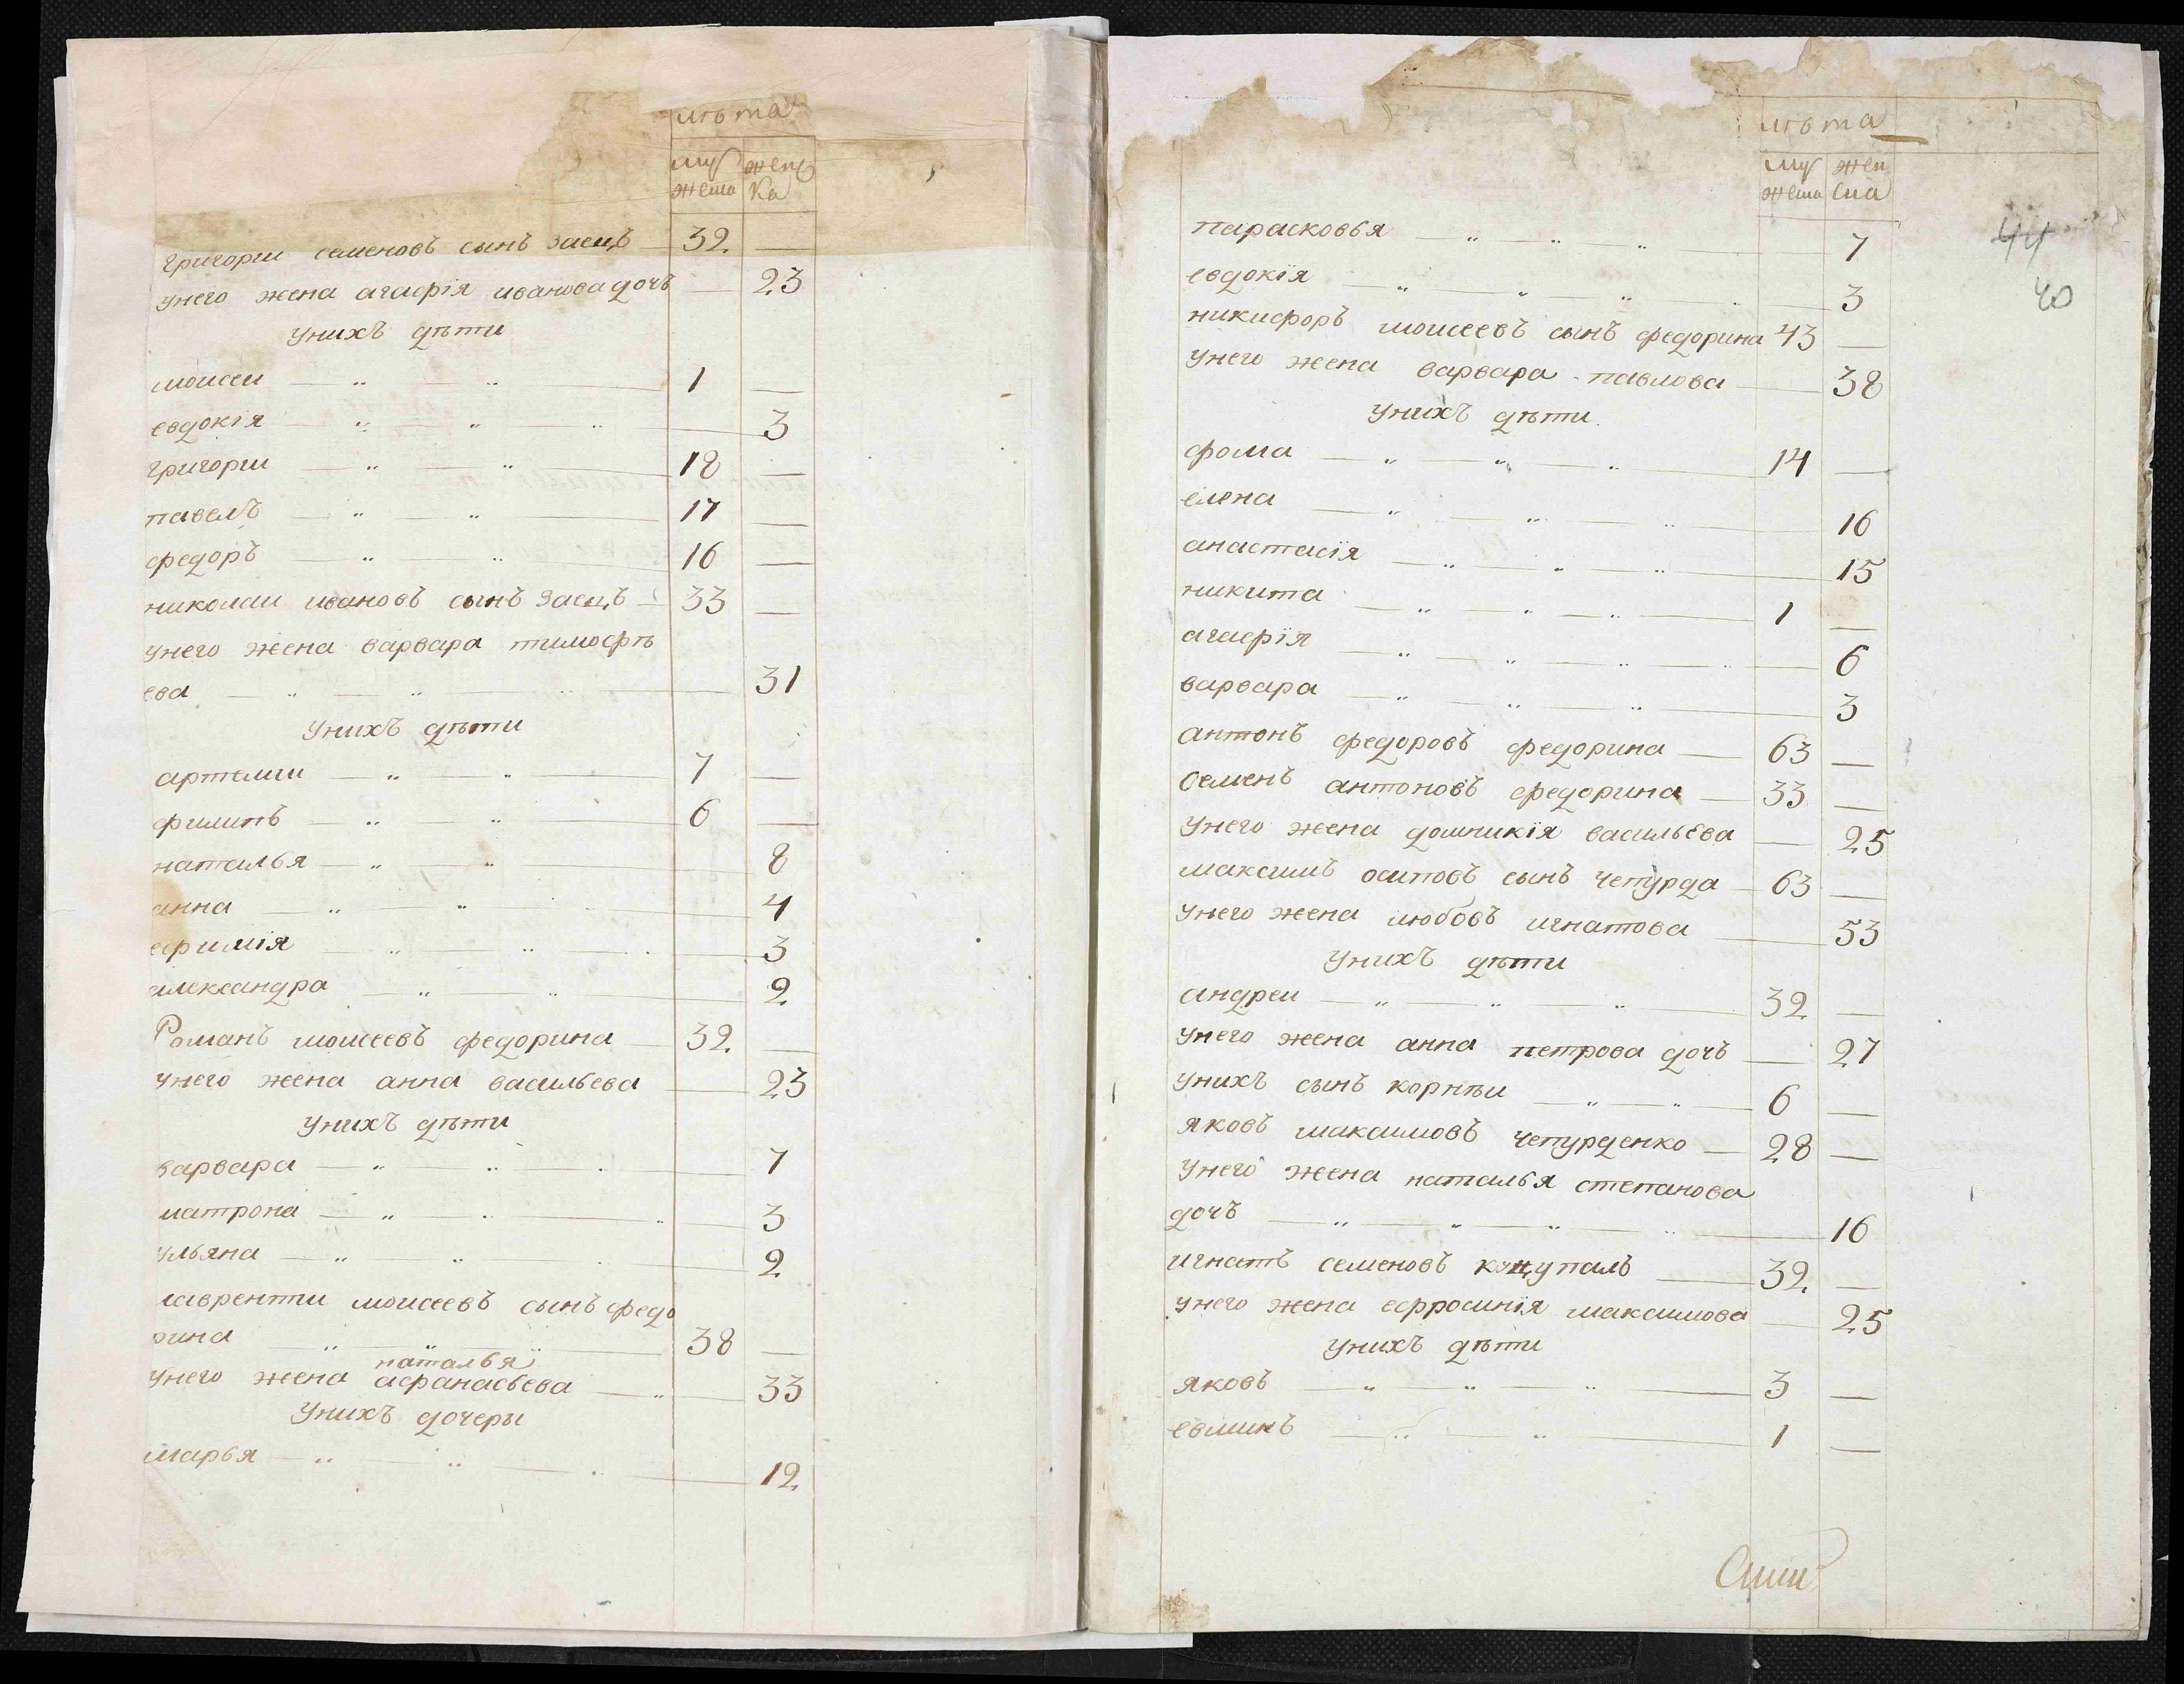 лѣта
му женс
жеска ка
григории семеновъ сынъ заецъ — 32 —
унего жена агафія иванова дочъ — 23
унихъ дѣти
моисеи — „ — „ — 1 —
евдокія — „ — „ — „ — 3
григории — „ — „ — 18 —
павелъ — „ — „ — 17 —
федоръ — „ — „ — 16 —
николаи ивановъ сынъ заецъ — 33 —
унего жена варвара тимофѣ
ева — „ — „ — 31
унихъ дѣти
артемии — „ — „ — 7 —
филипъ — „ — „ — 6 —
наталья — „ — „ — 8
анна — „ — „ — 4
ефимія — „ — „ — 3
александра — „ — „ — 2
Романъ моисеевъ федорина — 32 —
унего жена анна васильева — 23
унихъ дѣти
варвара — „ — „ — 7
матрона — „ — „ — 3
ульяна — „ — „ — 2
лаврентии моисеевъ сынъ федо
рина — „ — „ — „ — 38 —
наталья
унего жена афанасьева — „ — 33
унихъ дочеры
марья — „ — „ — „ — 12
лѣта
му жен
жеска ска
44
40
парасковья — „ — „ — „ — 7
евдокїя — „ — „ — „ — 3
никифоръ моисеевъ сынъ федорина 43 —
унего жена варвара павлова — 38
унихъ дѣти
фома — „ — „ — „ — 14 —
елена — „ — „ — „ — 16
анастасїя — „ — „ — „ — 15
никита — „ — „ — „ — 1 —
агафїя — „ — „ — „ — 6
варвара — „ — „ — „ — 3
антонъ федоровъ федорина — 63 —
семенъ антоновъ федорина — 33 —
унего жена домникїя васильева — 25
максимъ осиповъ сынъ чепурда — 63 —
унего жена любовъ игнатова — 53
унихъ дѣти
андреи — „ — „ — „ — 32 —
унего жена анна петрова дочъ — 27
унихъ сынъ корнѣи — „ — „ — 6 —
яковъ максимовъ чепурденко — 28 —
унего жена наталья степанова
дочъ — „ — „ — „ — 16
игнатъ семеновъ — 32 —
унего жена ефросинїя максимова — 25
унихъ дѣти
яковъ — „ — „ — „ — 3 —
— „ — „ — 1 —